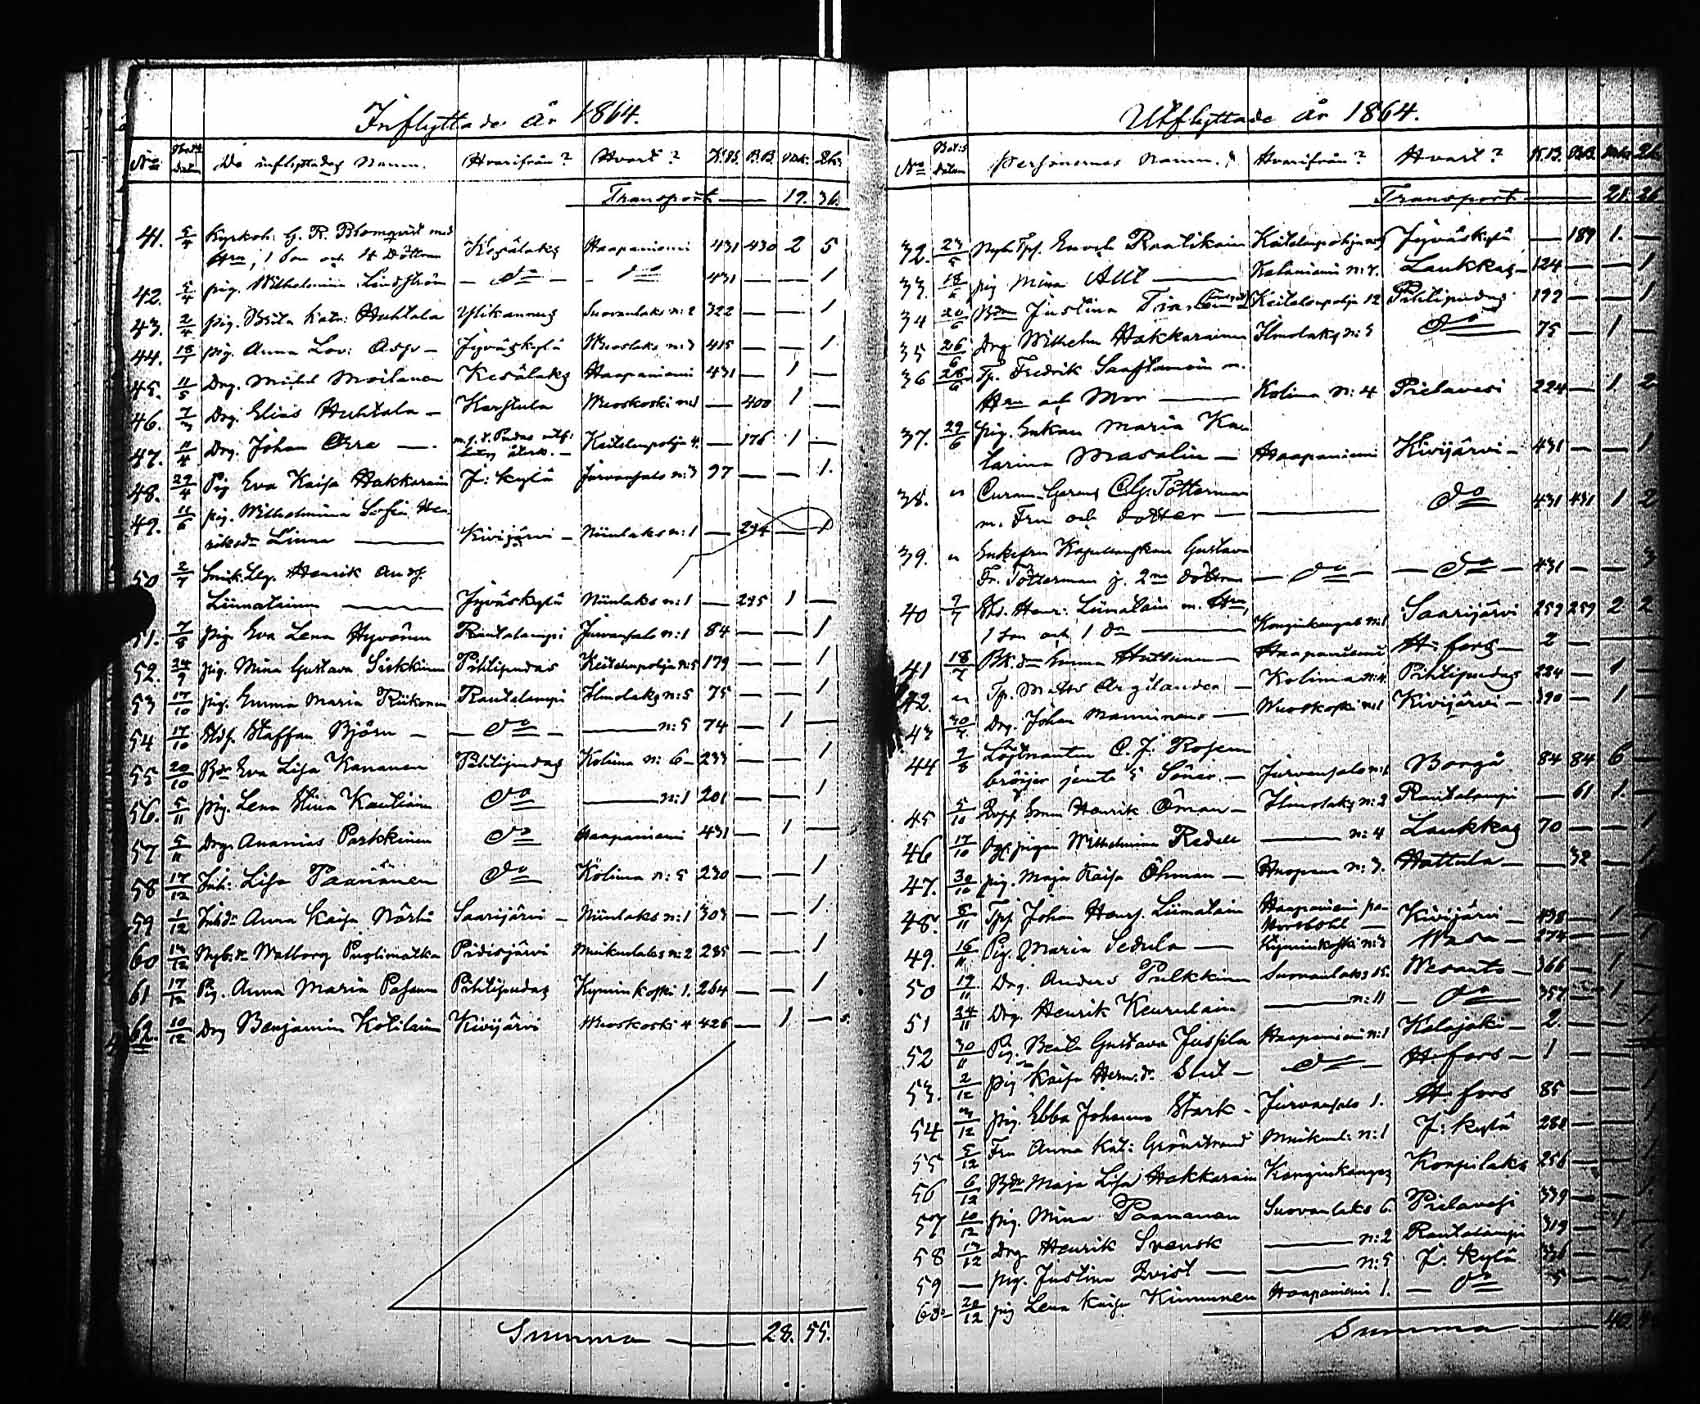 Inflyttade År 1864.
No Betr. datum De inflyttades Namn. Hvarifrån? Hvart? K.B. B.B. Mk. Qk.
Transport — 19. 36
41. 5/4 Kyrkoh. G. R. Blomqvist med
Hu, 1 Son och 4 Döttrar Kesälaks Haapaniemi 431 430 2 5
42. 5/4 pig. Wilhelmina Lindström — do — — do — 431 — — 1
43. 2/4 pig. Brita Kats: Huhtala Ylikannus Suovanlaks n:2 322 — — 1
44. pig. Anna Lov: Asp — Jyväskylä n:3 415 — — 1
45. 11/5 Drg. Michel Moilanen Kesälaks Haapaniemi 431 — 1 —
46. 7/3 Drg. Elias Huhtala — Karstula Wuoskoski n:1 — 400 1 —
47. 11/4 Drg. Johan Orre — Keitelenpohja 4. — 176 1 —
48. 29/4 Pig Eva Kaisa Hakkarain J:kylä Jurvansalo n:3 97 — — 1.
49. 11/6 pig. Wilhelmina Sofia Hen-
riksdr Linna — Kivijärvi — Niinilaks n:1 — 294 — 1
50 2/7 Henrik
Liimatainen — Jyväskylä Niinilaks n:1 — 295 1 —
51. 7/8 pig. Eva Lena Hyvönen Rautalampi Jurvansalo n:1 84 — — 1
52. 24/9 pig. Mina Gustava Siekkinen Pihtipudas Keitelenpohja n:5 179 — — 1
53 17/10 pig. Emma Maria Riikonen Rautalampi Ilmolaks n:5 75 — — 1
54 17/10 Staffan Björn — — do — — n:5 74 — 1 —
55 20/10 Bdr Eva Lisa Kananen Pihtipudas Kolima n: 6 — 233 — — 1
56. 5/11 pig. Lena Stina Kautiain do — n:1 201 — — 1
57 5/11 Drg. Ananias Parkkinen do Haapaniemi 431 — 1 —
58 17/12 Inh: Lisa Paananen do Kolima n:5 230 — — 1
59 1/12 Inhdr Anna Kaisa Närhi Saarijärvi — Niinilaks n:1 303 — — 1
60 13/12 Nyb.dr Walborg Puolimatka Pidisjärvi Muikunlaks n:2 285 — — 1
61 17/12 Pig. Anna Maria Pasanen Pihtipudas Kyminkoski 1. 264 — — 1
62. 10/12 Drg Benjamin Kotilain Kivijärvi Wuoskoski 4 426 — 1 —
Summa — 28. 55.
Utflyttade År 1864.
No Bet:s datum Personernas Namn. Hvarifrån? Hvart? K.B. B.B. Mk. Qk.
Transport — 21. 26
32. 23/5 Enoch Raatikain Keitelenpohja Jyväskylä — 189 1. —
33. 18/6 pig Mina Ahl — Kolaniemi n:7. Laukkas — 124 — — 1
34 20/6 Bdr Justina Keitelenpohja 12 Pihtipudas 192 — — 1
35 26/6 Drg Wilhelm Hakkarainen Ilmolaks n:5 do 75 — 1 —
36 26/6 Tp. Fredrik Saastamoin m.
Hu och Mor — Kolima n:4 Pielavesi 224 — 1 2
37. 29/6 pig. Enkan Maria Ka-
tarina Masalin — Haapaniemi Kivijärvi — 431 — — 1
38. " Tötterman
m. Fru och dotter — — do 431 431 1 2
39. " Enkefru Gustava
Fr. Tötterman j. 2ne döttrar — do — — do — 431 — — 3
40 7/7 Henr: Liimatain m. Hu,
1 Son och 1 dr — Konginkangas n:1 Saarijärvi 259 259 2 2
41 18/7 Emma Huttunen — Haapaniemi H:fors — 2 — —
42. " Tp. Mats Argilander — Kolima n:4. Pihtipudas 224 — 1 —
43 30/7 Drg. Johan Manninen — Wuoskoski n:1 Kivijärvi — 390 — 1 —
44 2/8 Löjtnanten C. J. Rosen-
bröijer jemte 5 Söner — Jurvansalo n:1 Borgå 84 84 6 —
45 5/10 Henrik Öman — Ilmolaks n:2 Rautalampi — 61 1. —
46 17/10 pigan Wilhelmina Redell — n:4 Laukkas 70 — — 1
47. 30/10 pig. Maja Kaisa Öhman — Huopana n:3. Hattula — — 32 — 1
48. 8/11 Tpf Johan Henr. Liimatain Haapaniemi
Kivijärvi — 438 — 1 —
49. 16/11 Pig Maria Sedula — Kyminkoski n:3 Wasa — 274 — — 1
50 19/11 Drg. Anders Pulkkinen Suovanlaks 15. Wesanto — 366 — 1 —
51 24/11 Drg. Henrik Keurulain — n:11 — do 357 — 1 —
52 30/11 Pig. Beata Gustava Jussila Haapaniemi n:1 Kalajoki — 2. — — 1
53. 2/12 pig Kaisa Herm.dr Slut — do — H:fors — 1 — — 1
54 3/12 pig. Ebba Johanna Stark — Jurvansalo 1. H:fors 85 — — 1
55 5/12 Fru Anna Kat: Grönstrand Muikunl: n:1 J:kylä 288 — — 1
56 6/12 Bdr Maja Lisa Hakkarain Konginkangas Konpilaks 256 — — 1
57 10/12 pig. Mina Paananen Suovanlaks 6. Pielavesi 339 — — 1
58 13/12 Drg Henrik Svensk — n:2 Rautalampi 319 — 1 —
59 — pig. Justina Qvist — — n:5 J:kylä 336 — — 1
60 20/12 pig Lena Kaisa Kinnunen Haapaniemi 1. — do 5 — — 1
Summa — 40